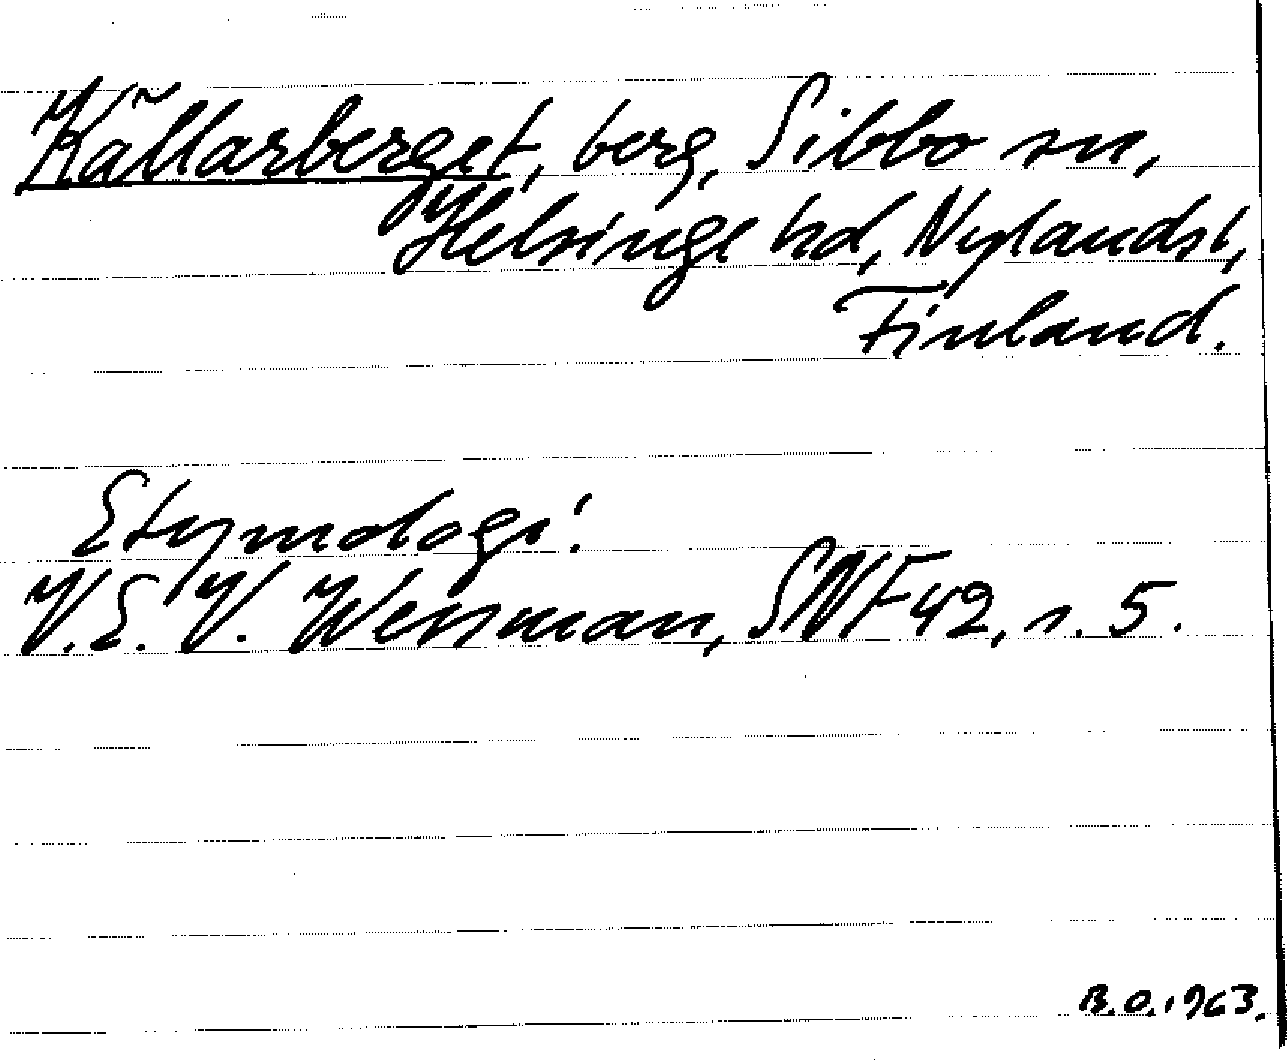 Källarberget, berg, Sibbo sn,
Helsinge hd, Nylands l,
Finland.
Etymologi!
V.E.V. Wessman, SNF 42, s. 5.
B.O. 1963.